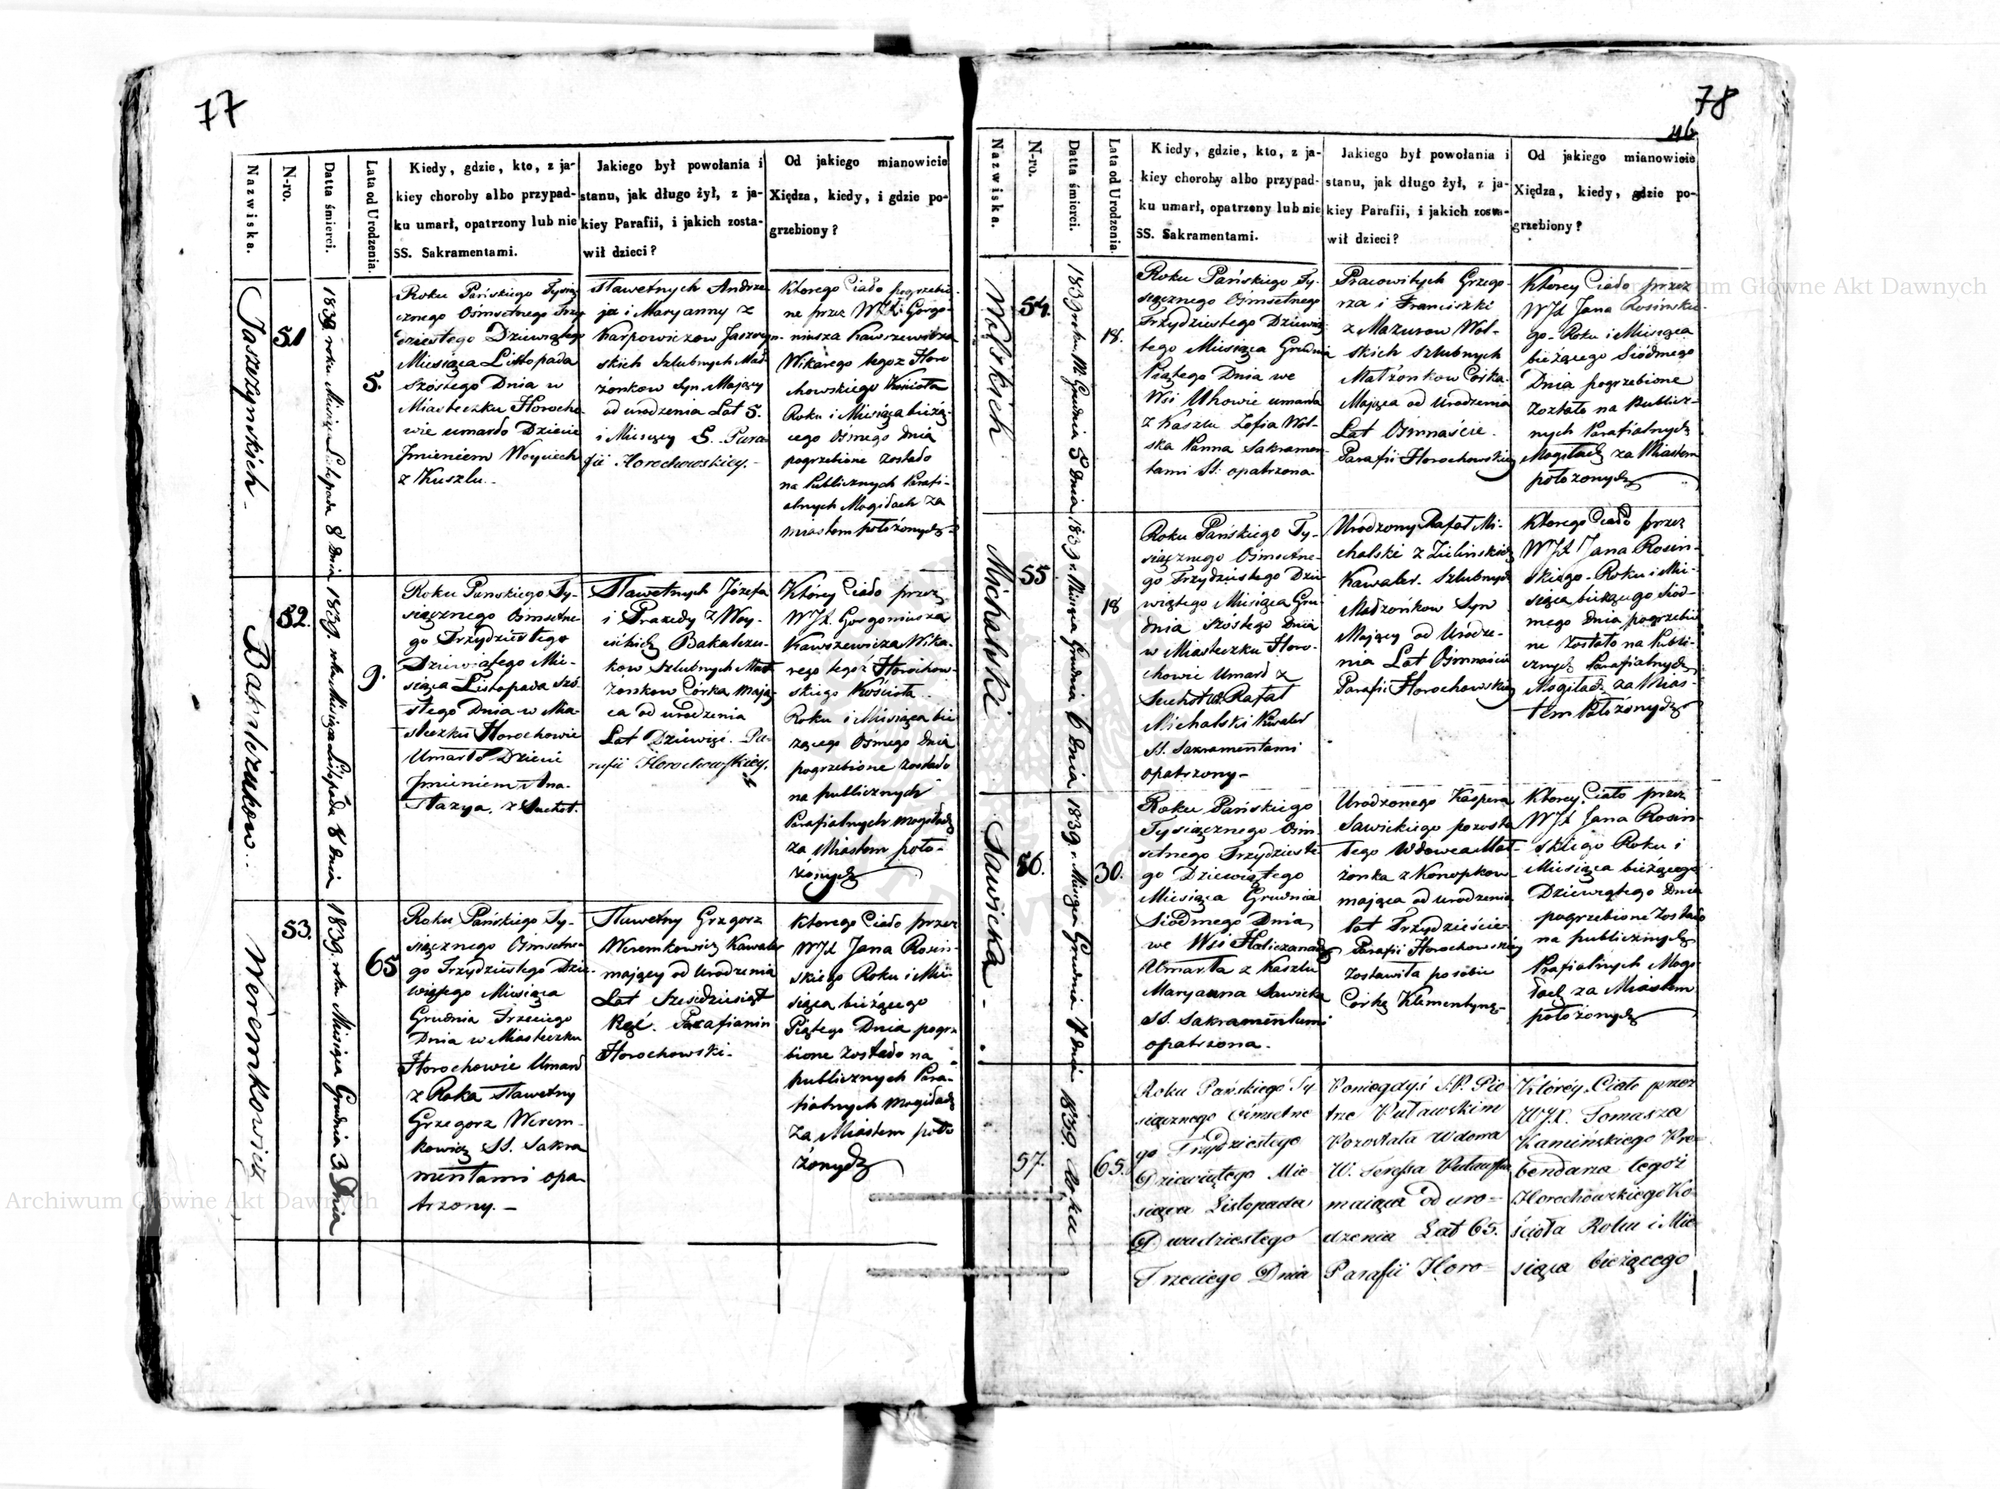 77
Nazwiska.
N-ro.
Datta śmierci.
Lata od Urodzenia.
Kiedy, gdzie, kto, z ja-
kiey choroby albo przypad-
ku umarł, opatrzony lub nie
SS. Sakramentami.
Jakiego był powołania i
stanu, jak długo żył, z ja-
kiey Parafii, i jakich zosta-
wił dzieci?
Od jakiego mianowicie
Xiędza, kiedy, i gdzie po-
grzebiony?
Jaszczynskich.
51
1839. roku Miesiąca Listopada 8 dnia
5.
Roku Pańskiego Tysią
cznego Osmsetnego Trzy
dziestego Dziewiątego
Miesiąca Listopada
Szóstego Dnia w
Miasteczku Horocho
wie umarło Dziecie
Jmieniem Woyciech
z Kuszlu.
Sławetnych Andrze
ja i Maryanny z
Karpowiczow Jaszczyn-
skich szlubnych Mał
żonkow Syn Maiący
od urodzenia Lat 5.
i Miesięcy 5. Para
fii Horochowskiey.-
Ktorego Ciało pogrzebio
ne przez WJX Gorgo-
niusza Kawrzewicza
Wikarego tegoż Horo
chowskiego Kościoła
Roku i Miesiąca bieżą-
cego Osmego dnia
pogrzebione zostało
na Publicznych Parafi-
alnych Mogiłach za
miastem położonych
Bakalczukow.
52.
1839. roku Miesiąca Listopada 8 dnia
9.
Roku Panskiego Ty-
siącznego Osmsetne-
go Trzydziestego
Dziewiątego Mie-
siąca Listopada szó-
stego Dnia w Mia-
steczku Horochowie
Umarło Dziecie
Jmieniem Ana-
stazya, z Suchot.
Sławetnych Józefa
i Praxedy z Woy-
cickich Bakalczu-
kow Szlubnych Mał
żonkow Córka mają-
ca od urodzenia
Lat Dziewięć. Pa-
rafii Horochowskiey.
Którey Ciało przez
WJX. Gorgoniusza
Kawszewicza Wika-
rego tegoż Horochow-
skiego Kościoła
Roku i Miesiąca bie
żącego Osmego dnia
pogrzebione zostało
na publicznych
Parafialnych mogiłach
za Miastem poło-
żonych
Weremkowicz
53.
1839. roku Miesiąca Grudnia 3 Dnia
65
Roku Pańskiego Ty-
siącznego Osmsetne-
go Trzydziestego Dzie-
wiątego Miesiąca
Grudnia Trzeciego
Dnia w Miasteczku
Horochowie Umarł
z Raka sławetny
Grzegorz Werem-
kowicz SS. Sakra
mentami opa-
trzony.-
Sławetny Grzegorz
Weremkowicz Kawaler
mający od Urodzenia
Lat Sześdziesiąt
Pięć. Parafianin
Horochowski.
Ktorego Ciało przez
WJX Jana Rosin-
skiego Roku i Mie-
siąca bieżącego
Piątego Dnia pogrze
bione zostało na
publicznych Para-
fialnych Mogiłach
za Miastem poło
żonych
78
46
Nazwiska.
N-ro.
Datta śmierci.
Lata od Urodzenia.
Kiedy, gdzie, kto, z ja-
kiey choroby albo przypad-
ku umarł, opatrzony lub nie
SS. Sakramentami.
Jakiego był powołania i
stanu, jak długo żył, z ja-
kiey Parafii, i jakich zosta-
wił dzieci?
Od jakiego mianowicie
Xiędza, kiedy, gdzie po-
grzebiony?
Wolskich
54.
1839 roku M. Grudnia 5 dnia
18.
Roku Pańskiego Ty-
siącznego Osmsetnego
Trzydziestego Dziewią
tego Miesiąca Grudnia
Piątego Dnia we
Wsi Uhowie umarła
z Kaszlu Zofia Wol-
ska Panna Sakramen-
tami SS. opatrzona
Pracowitych Grzego-
rza i Franciszki
z Mazurow Wol-
skich szlubnych
Małżonkow Corka
Mająca od Urodzenia
Lat Osmnaście.
Parafii Horochowskiey
Ktorey Ciało przez
WJX Jana Rosinskie-
go- Roku i Miesiąca
bieżącego Siódmego
Dnia pogrzebione
Zostało na Publicz-
nych Parafialnych
Mogiłach za Miastem
położonych
Michalski
55
1839 r. Miesiąca Grudnia 6 dnia
18
Roku Pańskiego Ty-
siącznego Osmsetne-
go Trzydziestego Dzie
wiątego Miesiąca Gru-
dnia Szóstego Dnia
w Miasteczku Horo-
chowie Umarł z
Suchot Rafał
Michalski Kawaler
SS. Sakramentami
opatrzony-
Urodzony Rafał Mi-
chalski z Zielinskich
Kawaler. Szlubnych
Małżonkow Syn
Mający od Urodze-
nia Lat Osmnaście
Parafii Horochowskiey
Ktorego Ciało przez
WJX Jana Rosin-
skiego- Roku i Mie-
siąca bieżącego Siód-
mego dnia pogrzebio
ne Zostało na Publi-
cznych Parafialnych
Mogiłach za Mias-
tem Położonych
Sawicka.
56.
1839 r. Miesiąca Grudnia 7 dnia
30.
Roku Pańskiego
Tysiącznego Osm
setnego Trzydzieste
go Dziewiątego
Miesiąca Grudnia
Siódmego Dnia
we Wsi Haliczanach
Umarła z Kaszlu
Maryanna Sawicka
SS. Sakramentami
opatrzona.
Urodzonego Kaspera
Sawickiego pozosta
łego Wdowca Mał-
żonka z Konopkow
mająca od urodzenia
lat Trzydzieście
Parafii Horochowskiey
Zostawiła po sobie
Corkę Klementynę-
Ktorey Ciało przez
WJX Jana Rosin-
skiego Roku i
Miesiąca bieżącego
Dziewiątego dnia
pogrzebione Zostało
na publicznych
Prafialnych Mogi-
łach za Miastem
położonych
57.
1839. Roku
65.
Roku Pańskiego Ty
siącznego Ośmsetne
go Trzydziestego
Dziewiątego Mie
siąca Listopada
Dwudziestego
Trzeciego Dnia
Poniegdyś SP. Pio
trze Puławskim
Pozostała Wdowa
W. Teressa Puławska
maiąca od uro-
dzenia Lat 65.
Parafii Horo-
Którey Ciało przez
WJX. Tomasza
Kamińskiego Pre-
bendarza tegoż
Horochowskiego Ko-
ścioła Roku i Mie
siąca bieżącego
Archiwum Główne Akt Dawnych
Archiwum Główne Akt Dawnych